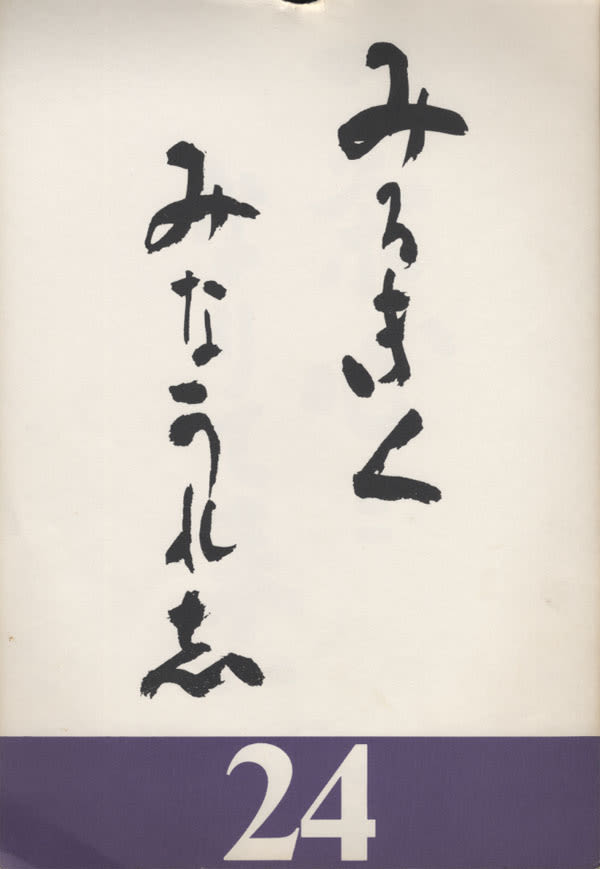 みるきく
みなうれ志
24